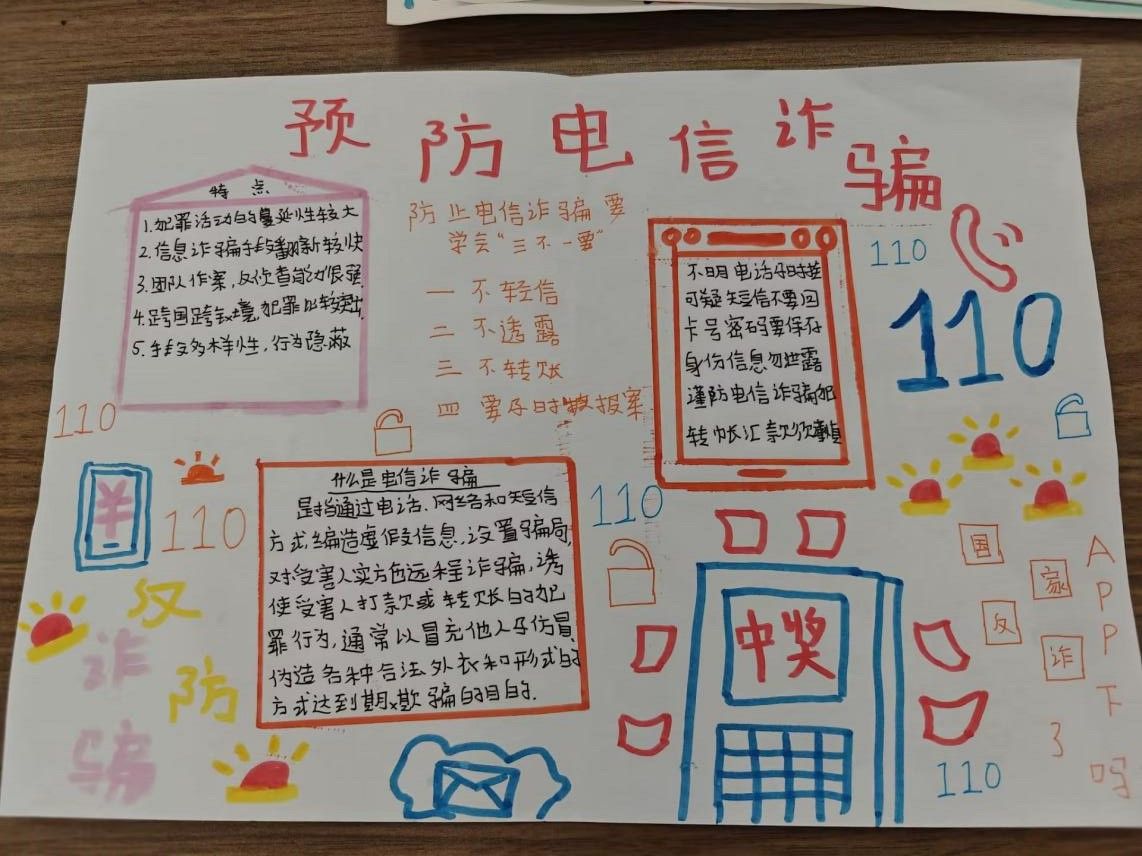 预防电信诈骗
特点
1.犯罪活动的蔓延性较大
2.信息诈骗手段翻新较快
3.团队作案,反侦查能力很强
4.跨国跨境,犯罪比较突出
5.手段多样性,行为隐蔽
防止电信诈骗要
学会“三不一要”
一 不轻信
二 不透露
三 不转账
四 要及时报案
不明电话及时挂
可疑短信不要回
卡号密码要保存
身份信息勿泄露
谨防电信诈骗犯
转帐汇款须慎
110
110
110
110
¥
110
什么是电信诈骗
是指通过电话、网络和短信
方式,编造虚假信息,设置骗局,
对受害人实方色远程诈骗,诱
使受害人打款或转账的犯
罪行为,通常以冒充他人及仿冒、
伪造各种合法外衣和形式的
方式达到期欺骗的目的.
反
诈
防
骗
中奖
国家反诈
APP下
3
吗
110